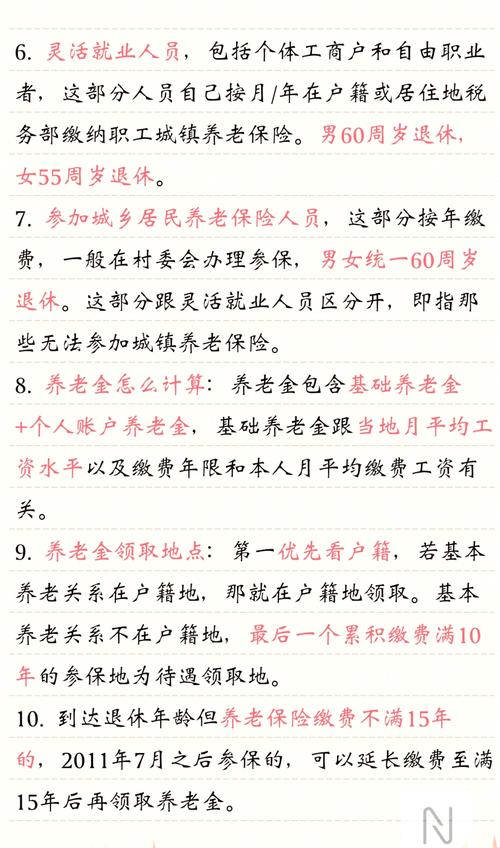 6. 灵活就业人员，包括个体工商户和自由职业
者，这部分人员自己按月/年在户籍或居住地税
务部缴纳职工城镇养老保险。男60周岁退休，
女55周岁退休。
7. 参加城乡居民养老保险人员，这部分按年缴
费，一般在村委会办理参保，男女统一60周岁
退休。这部分跟灵活就业人员区分开，即指那
些无法参加城镇养老保险。
8. 养老金怎么计算：养老金包含基础养老金
+个人账户养老金，基础养老金跟当地月平均工
资水平以及缴费年限和本人月平均缴费工资有
关。
9. 养老金领取地点：第一优先看户籍，若基本
养老关系在户籍地，那就在户籍地领取。基本
养老关系不在户籍地，最后一个累积缴费满10
年的参保地为待遇领取地。
10. 到达退休年龄但养老保险缴费不满15年
的，2011年7月之后参保的，可以延长缴费至满
15年后再领取养老金。